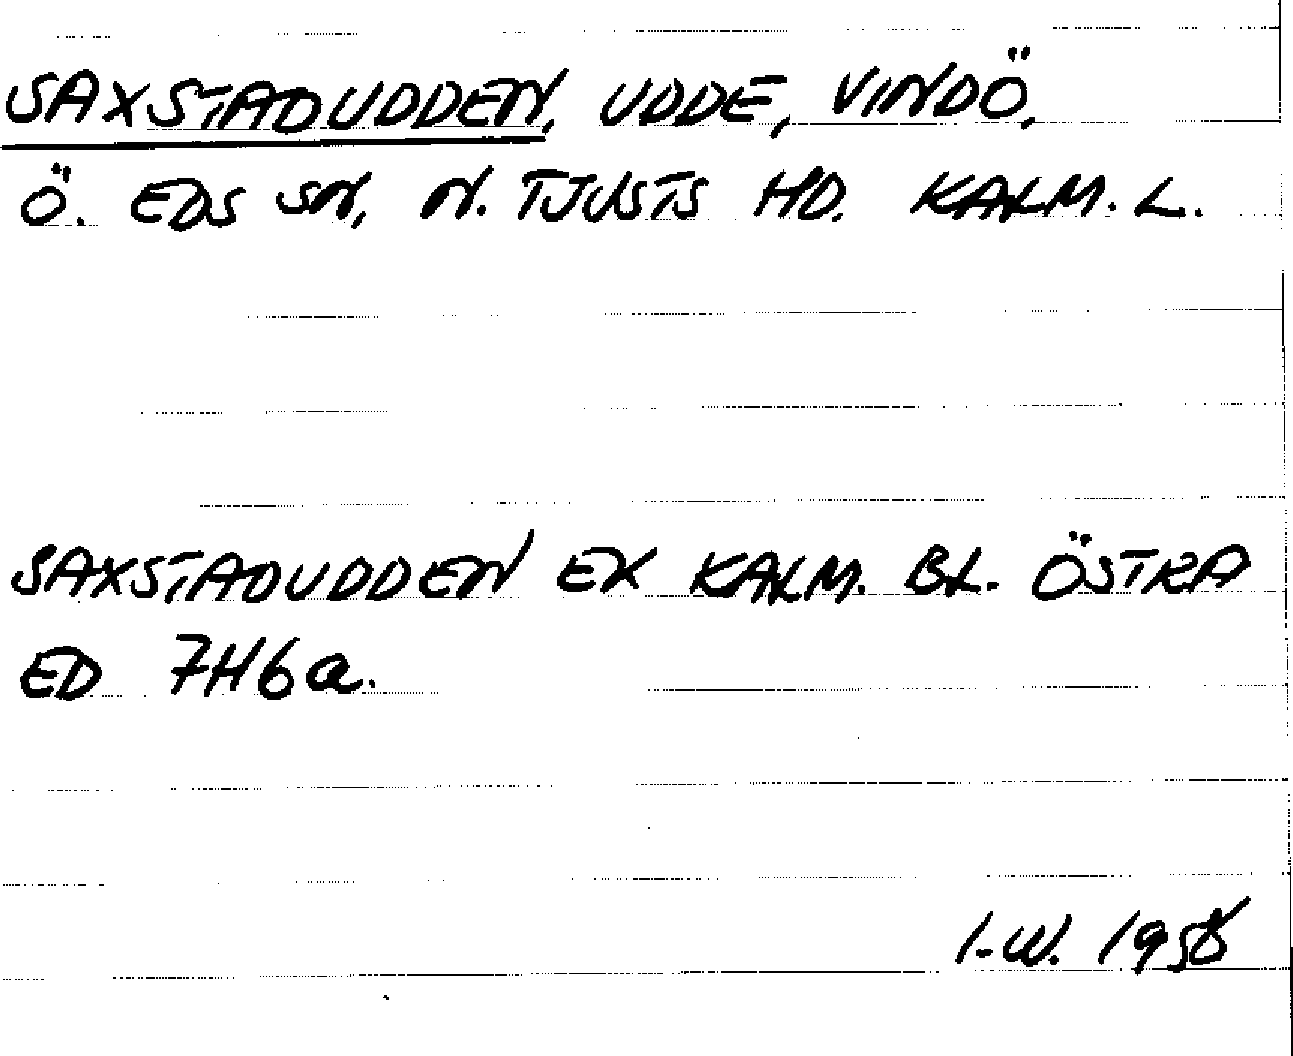 SAXSTADUDDEN, UDDE, VINDÖ,
Ö. EDS SN, N. TJUSTS HD. KALM. L.
SAXSTADUDDEN EK KALM. BL. ÖSTRA
ED 7H6a.
I.W. 1958